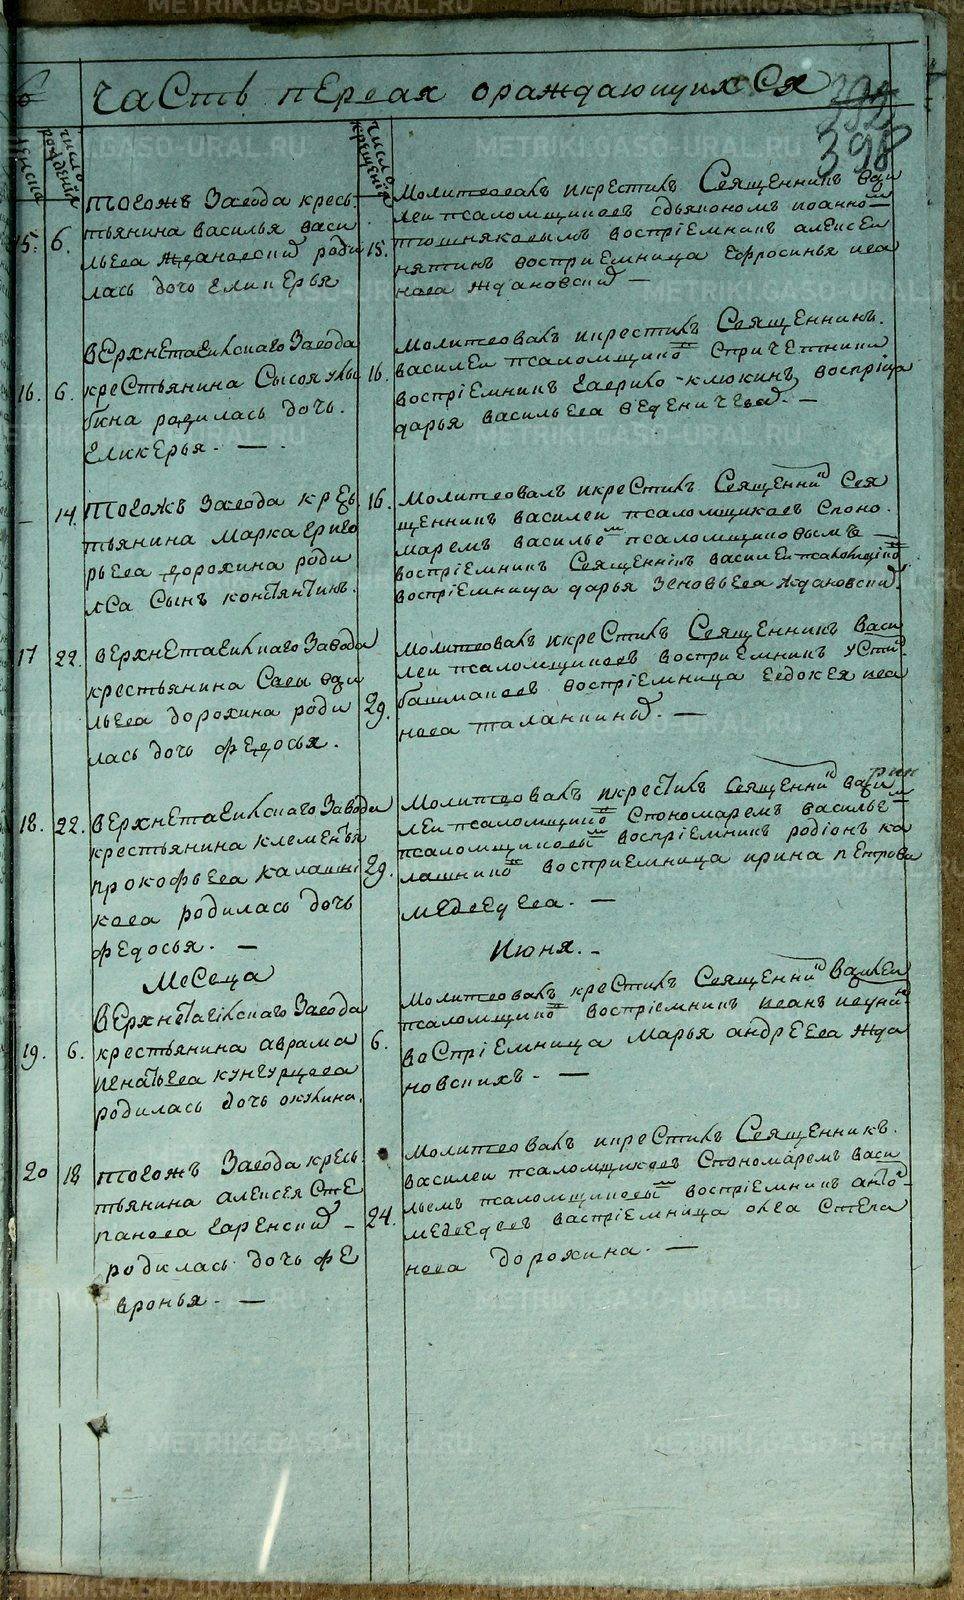 часть первая ораждающихся
392
398
число рождения
число крещения
15. 6.
тогожъ Завода кресь
тьянина василья васи
льева ждановский роди
лась дочь еликерья
15.
Молитвовалъ икрестилъ Священникъ васи
леи псаломщиковъ сдьякономъ иоанно
восприемникъ алексеи
восприемница Ефросинья ива
нова ждановский —
16. 6.
верхнетагилскаго Завода
крестьянина Сысоя
родилась дочь.
Еликерья. —
16.
Молитвовалъ икрестилъ Священникъ.
василеи псаломщико спричетники
восприемникъ гаврило клюкинъ восприца
дарья васильева
— 14.
тогожъ Завода кресь
тьянина Марка григо
рьева дорохина роди
лСа Сынъ константинъ.
16.
молитвовалъ икреСтилъ Священни Свя
щенникъ василеи псаломщиковъ Споно.
маремъ василье псаломщиковымъ —
восприемникъ Священникъ василеи псаломщико
восприемница дарья Зеновьева ждановский
17 22.
верхнетагилскаго Завода
крестьянина Савы васи
льева дорохина роди
лась дочь федосья.
29.
молитвовалъ икреСтилъ Священникъ васи
леи псаломщиковъ восприемникъ усти
башмаковъ восприемница Евдокея ива
нова таланкины. —
18. 22.
верхнетагилскаго Завода
крестьянина клементья
прокофьева калашни
кова родилась дочь
федосья. —
29.
молитвовалъ икрестилъ Священни васи
леи псаломщико Спономаремъ василье
псаломщиковы восприемникъ родионъ ка
лашнико восприемница ирина петрова
медведева. —
Месеца Июня. –
19. 6.
верхнетагилскаго Завода
крестьянина аврама
игнатьева кунгурцова
родилась дочь окулина.
6.
Молитвовалъ креСтилъ Священни василеи
псаломщико восприемникъ иванъ
воСприемница Марья андреева жда
новскихъ. —
20 18
тогожъ Завода кресь
тьянина алексея Сте
панова
родилась дочь фе
вронья. —
24.
Молитвовалъ икреСтилъ Священникъ.
василеи псаломщиковъ Спономаремъ васи
льемъ псаломщиковы восприемникъ анто
медведевъ васприемница олга Степа
нова дорохина. —
METRIKI.GASO-URAL.RU